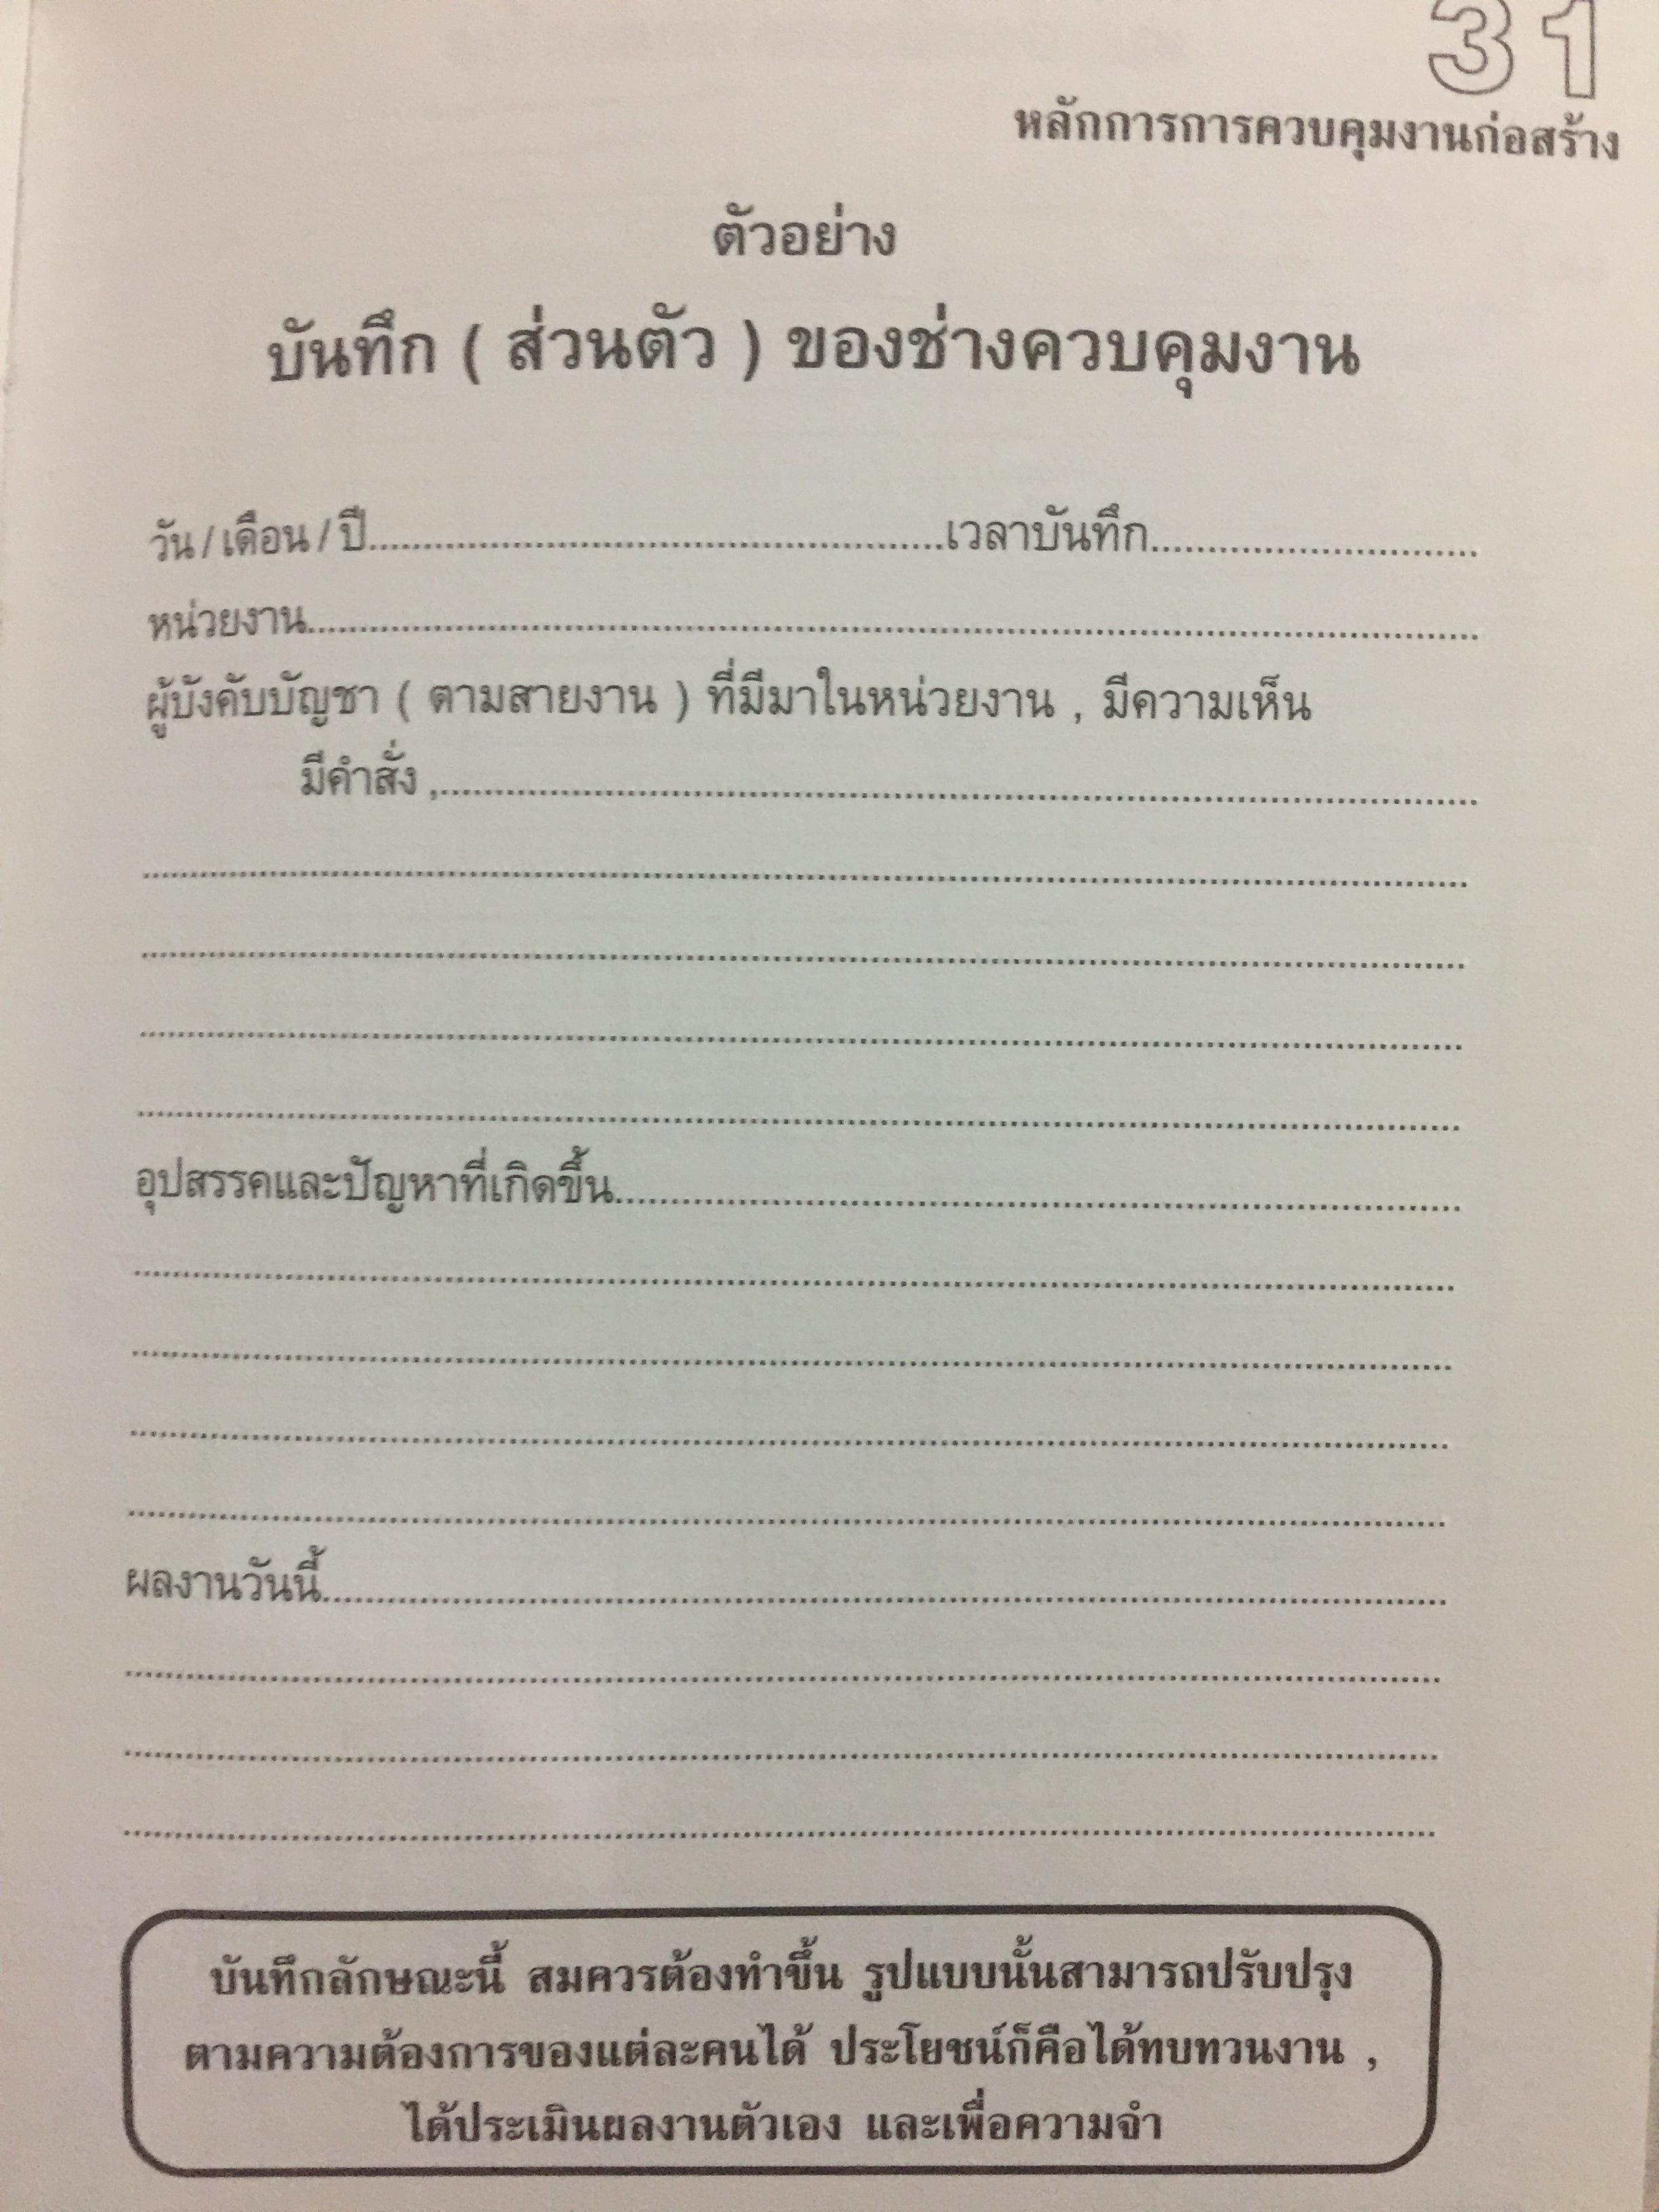 31
หลักการการควบคุมงานก่อสร้าง
ตัวอย่าง
บันทึก ( ส่วนตัว ) ของช่างควบคุมงาน
วัน / เดือน / ปี..........................................................เวลาบันทึก.................................
หน่วยงาน....................................................................................................................
ผู้บังคับบัญชา ( ตามสายงาน ) ที่มีมาในหน่วยงาน , มีความเห็น
มีคำสั่ง ,......................................................................................................
อุปสรรคและปัญหาที่เกิดขึ้น.....................................................................................
ผลงานวันนี้................................................................................................................
บันทึกลักษณะนี้ สมควรต้องทำขึ้น รูปแบบนั้นสามารถปรับปรุง
ตามความต้องการของแต่ละคนได้ ประโยชน์ก็คือได้ทบทวนงาน ,
ได้ประเมินผลงานตัวเอง และเพื่อความจำ